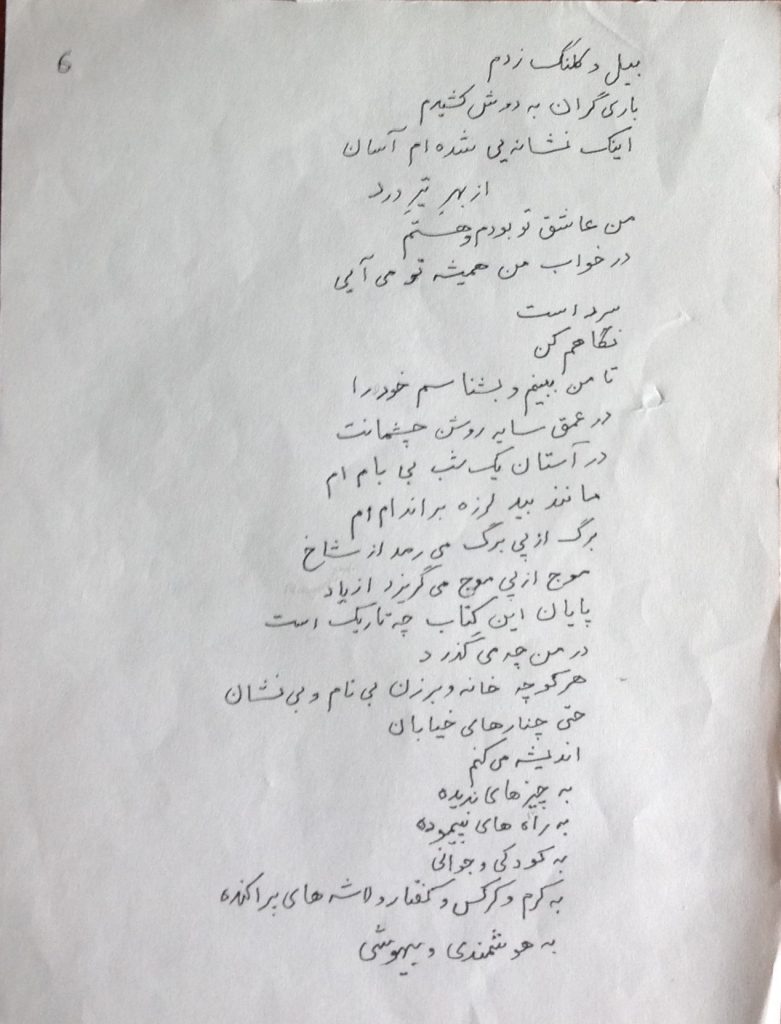 6
بیل و کلنگ زدم
باری گران به دوش کشیدم
اینک نشانه یی شده ام آسان
از بهرِ تیرِ درد
من عاشق تو بودم و هستم
در خواب من همیشه تو می آیی
سرد است
نگاهم کن
تا من ببینم و بشناسم خود را
در عمق سایه روشن چشمانت
در آستان یک شب بی بام ام
مانند بید لرزه بر اندام ام
برگ از پی برگ می رمد از شاخ
موج از پی موج می گریزد از یاد
پایان این کتاب چه تاریک است
در من چه می گذرد
هر کوچه خانه و برزن بی نام و بی نشان
حتی چنارهای خیابان
اندیشه می کنم
به چیزهای ندیده
به راه های نپیموده
به کودکی و جوانی
به کرم و کرکس و کفتار و لاشه های پراکنده
به هوشمندی و بیهوشی